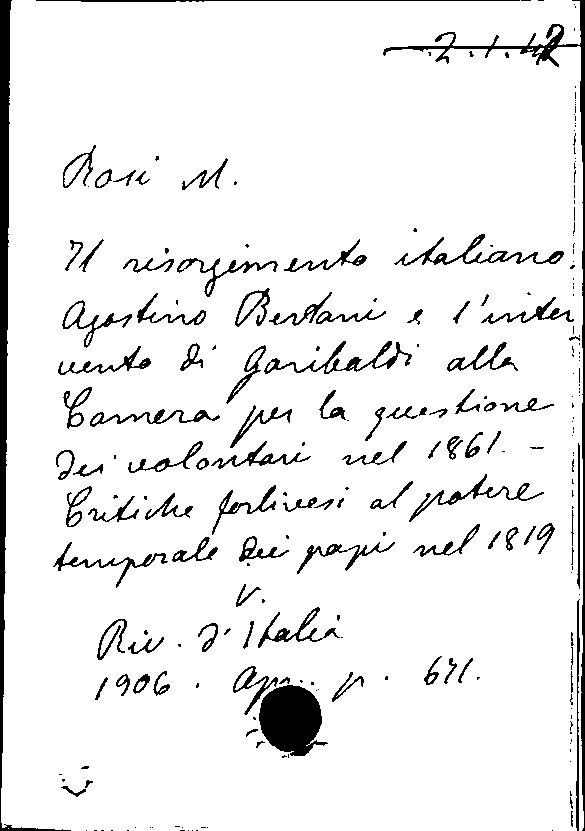 2.1.42
Rosi M.
Il risorgimento italiano.
Agostino Bertani e l'inter
vento di Garibaldi alla
Camera per la questione
dei volontari nel 1861. -
Critiche forlivesi al potere
temporale dei papi nel 1819
V.
Riv. d'Italia
1906. Apr. p. 671.